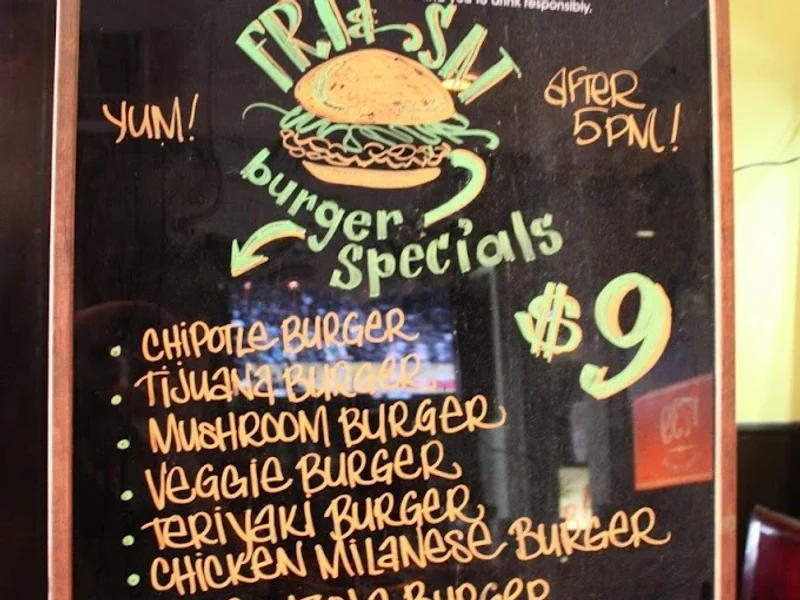 you to drink responsibly.
FRI & SAT
YUM!
AFTER
5PM!
burger
Specials
$9
• CHIPOTLE BURGER
• TIJUANA BURGER
• MUSHROOM BURGER
• VEGGIE BURGER
• TERIYAKI BURGER
• CHICKEN MILANESE BURGER
BURGER